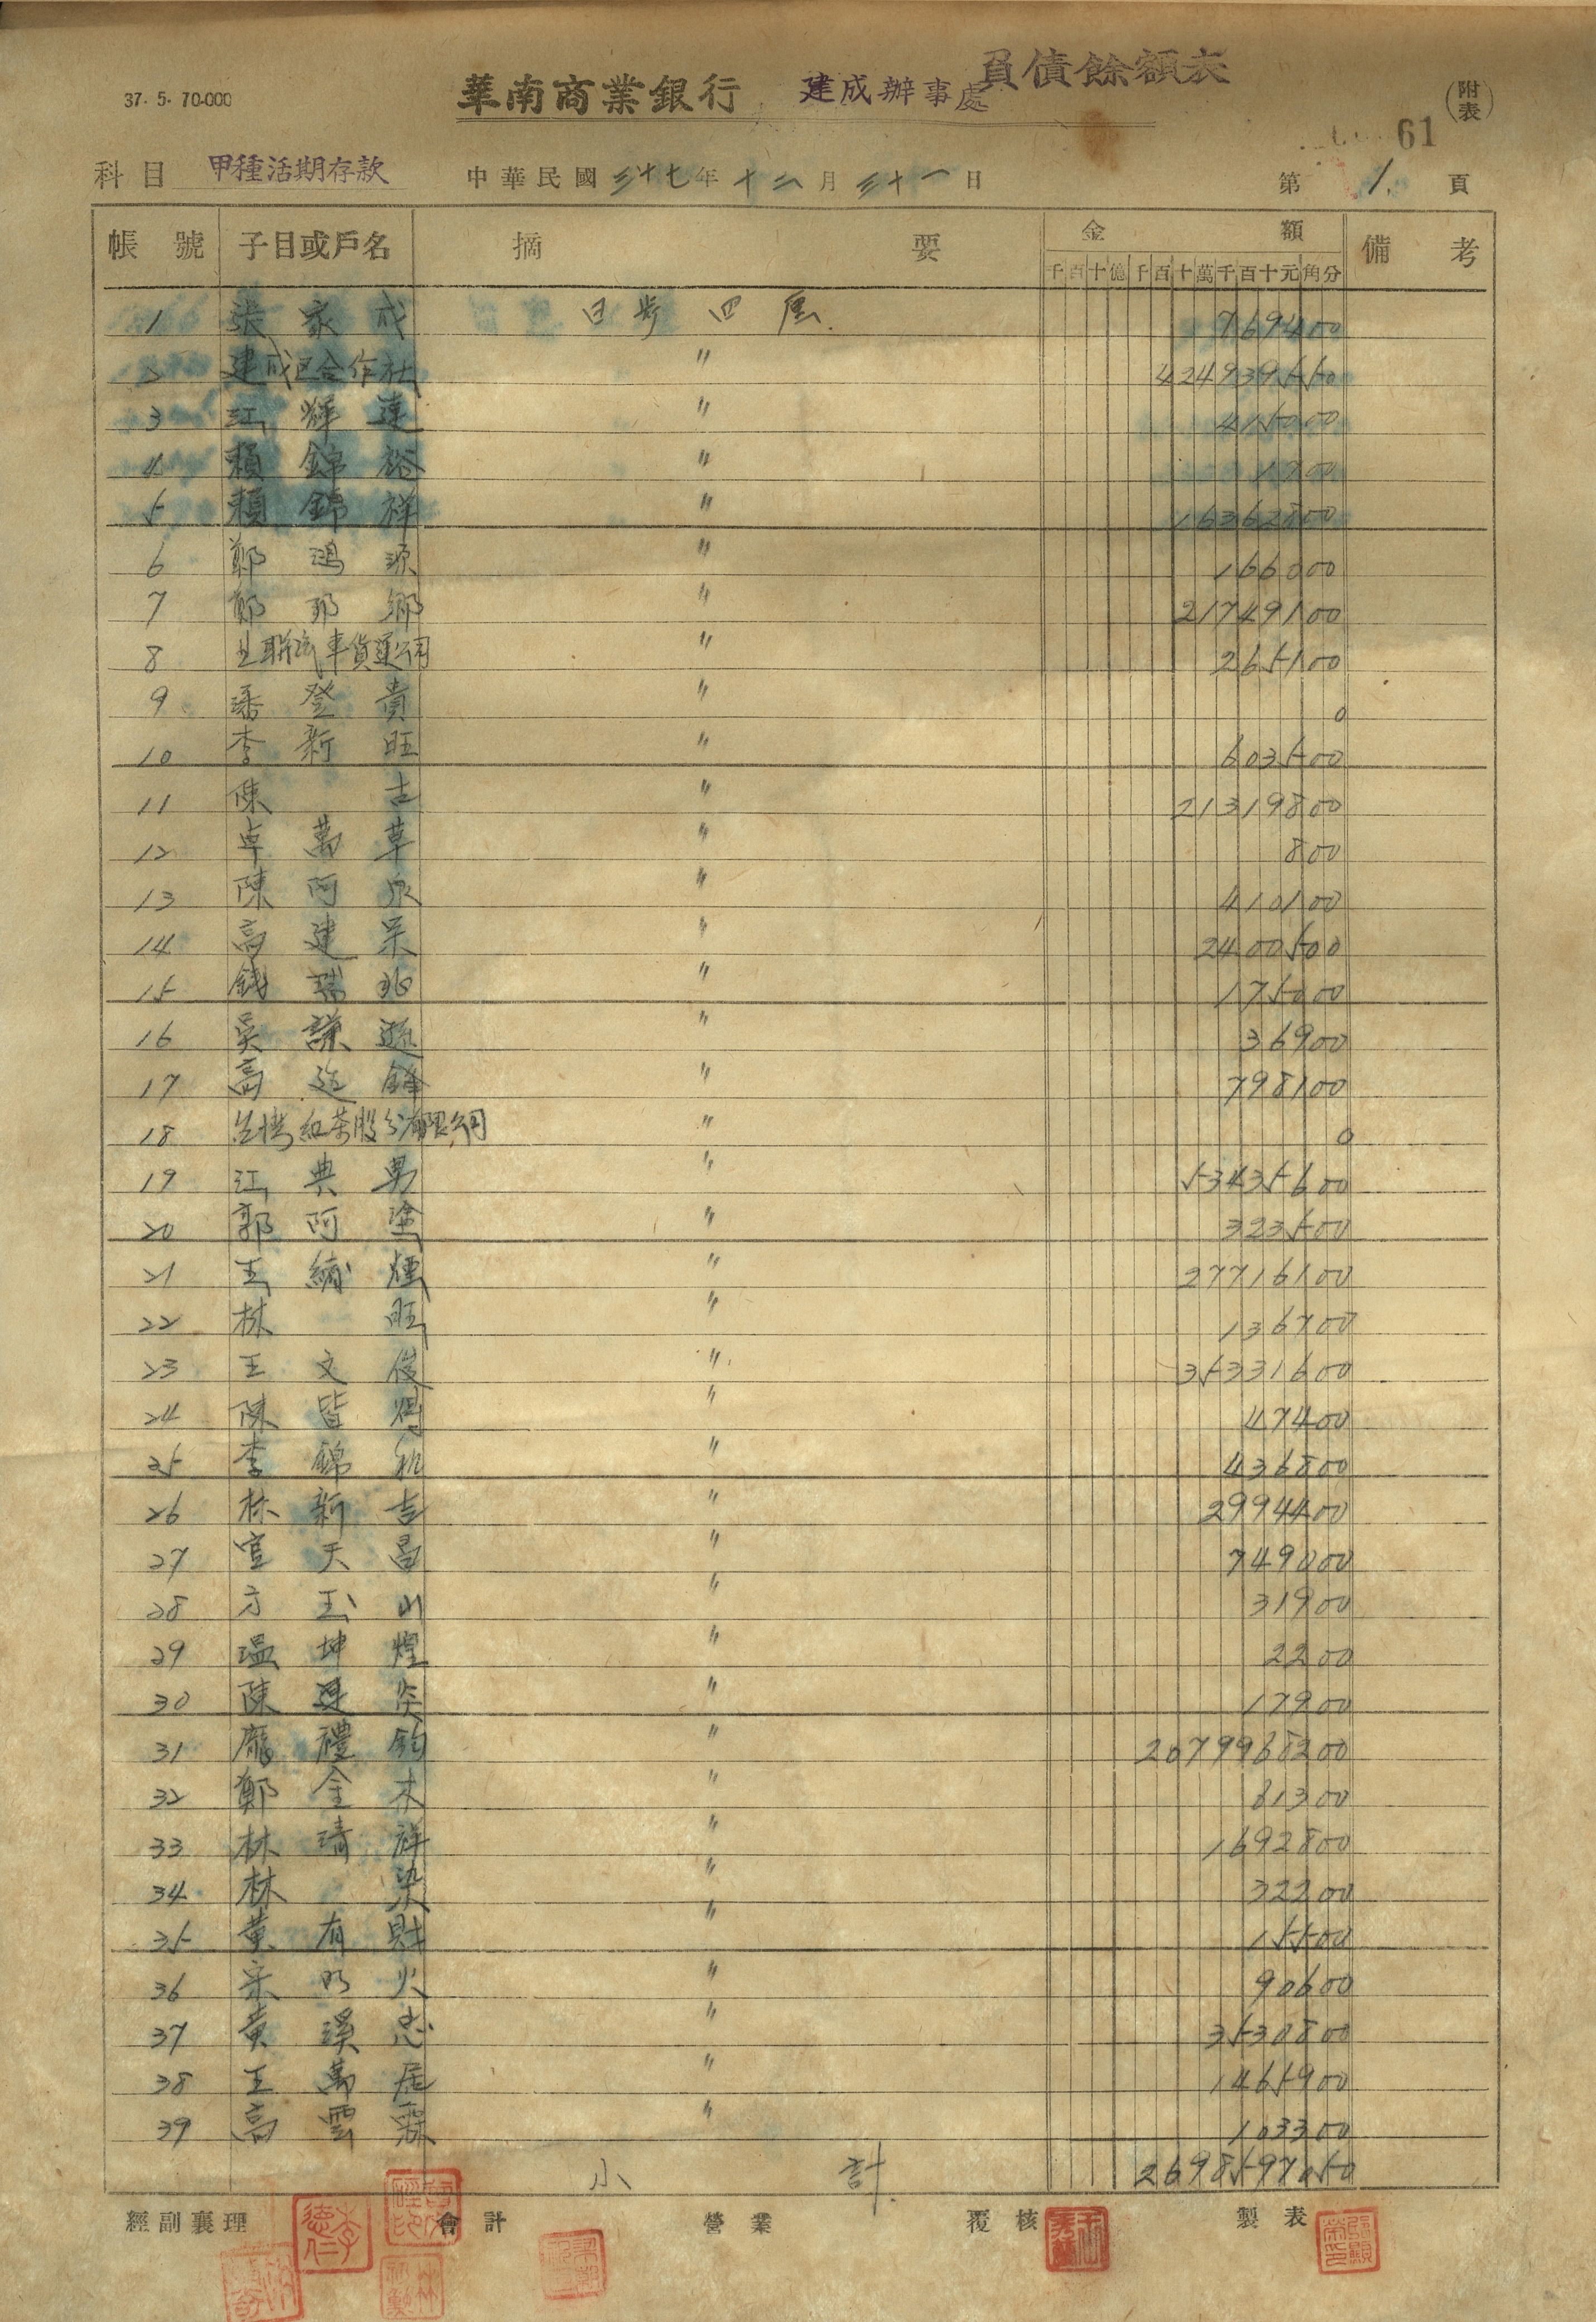 37. 5. 70.000
華南商業銀行 建成辦事處 負債餘額表
(附表)
61
科目 甲種活期存款 中華民國三十七年十二月三十一日 第 1. 頁
帳號 子目或戶名 摘要 金額 備考
千百十億千百十萬千百十元角分
1 張家成 日步四厘. 769400
2 建成区合作社 〃 424939550
3 江輝遠 〃 415000
4 賴錦裕 〃 1700
5 賴錦祥 〃 16362800
6 鄭鴻源 〃 166000
7 鄭 〃 21749100
8 聯汽車貨運公司 〃 265100
9 潘登貴 〃 0
10 李新旺 〃 603500
11 陳吉 〃 21319800
12 卓萬草 〃 800
13 陳阿泉 〃 410100
14 高建 〃 2400500
15 錢瑞 〃 175000
16 吳謙遜 〃 36900
17 高 鋒 〃 798100
18 紅茶股分有限公司 〃 0
19 江典男 〃 53435600
20 郭阿塗 〃 323500
21 王繡煙 〃 27716100
22 林旺 〃 136700
23 王文俊 〃 35331600
24 陳皆得 〃 47400
25 李錦 〃 436800
26 林新吉 〃 2994400
27 官天昌 〃 749000
28 方玉山 〃 31900
29 溫坤煌 〃 2200
30 陳建炎 〃 17900
31 龐禮鈞 〃 2079968200
32 鄭金木 〃 81300
33 林清祥 〃 1692800
34 林染 〃 32200
35 黃有財 〃 15500
36 宋明火 〃 90600
37 黃溪忠 〃 3530800
38 王萬居 〃 1465900
39 高雲霖 〃 103300
小計. 2698597050
經副襄理 會計 營業 覆核 製表
李德仁